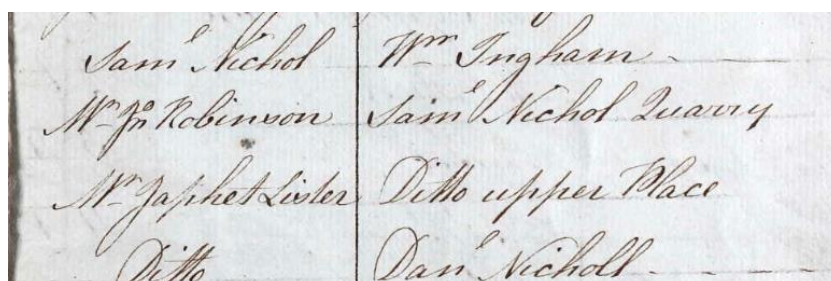 Saml Nichol Wm Ingham
Mr Jno Robinson Saml Nichol Quarry
Mr Japhet Lister Ditto upper Place
Ditto Danl Nicholl